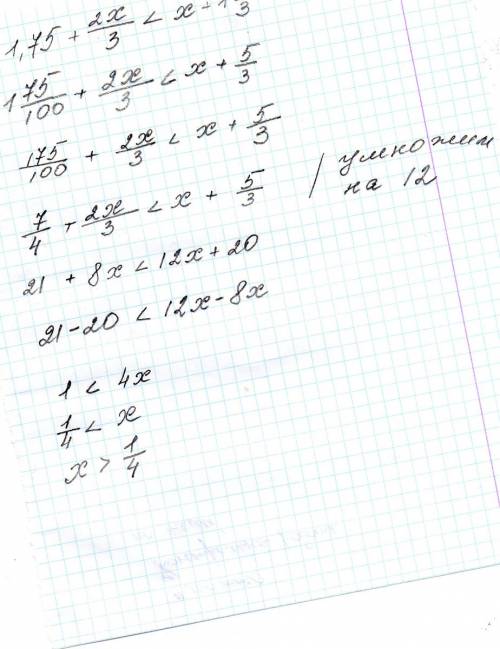 1,75 + 2x/3 < x + 1 /3
1 75/100 + 2x/3 < x + 5/3
175/100 + 2x/3 < x + 5/3
7/4 + 2x/3 < x + 5/3 / умножим на 12
21 + 8x < 12x + 20
21 - 20 < 12x - 8x
1 < 4x
1/4 < x
x > 1/4